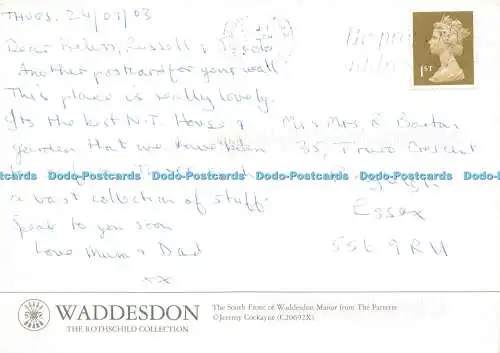 THURS. 24/07/03
Dear Helen, Russell &
Another postcard for your wall
This place is really lovely.
Its the best N.T. House &
garden that we have been
a vast collection of stuff.
Speak to you soon
Love Mum & Dad
xx
1ST
Mr & Mrs R Barton
35, Truro Crescent
Essex
SS6 9RU
Dodo-Postcards Dodo-Postcards Dodo-Postcards Dodo-Postcards Dodo-Postcards
WADDESDON
THE ROTHSCHILD COLLECTION
The South Front of Waddesdon Manor from The Parterre
©Jeremy Cockayne (C.20692X)